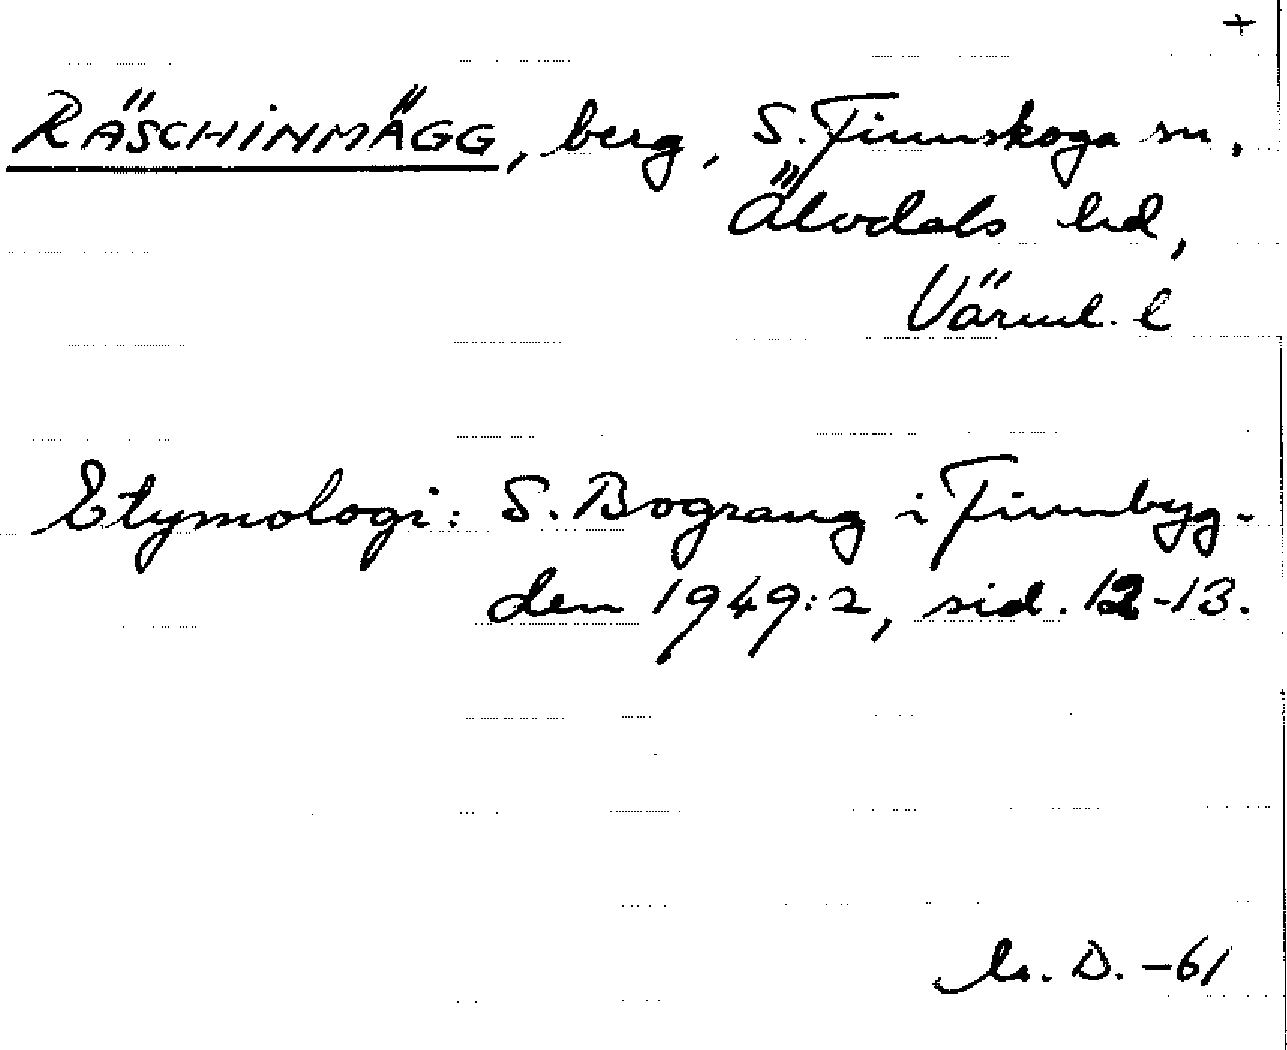 +
RÄSCHINMÄGG, berg, S. Finnskoga sn,
Älvdals hd,
Värml. l
Etymologi: S. Bograng i Finnbyg-
den 1949:2, sid. 12-13.
D. -61